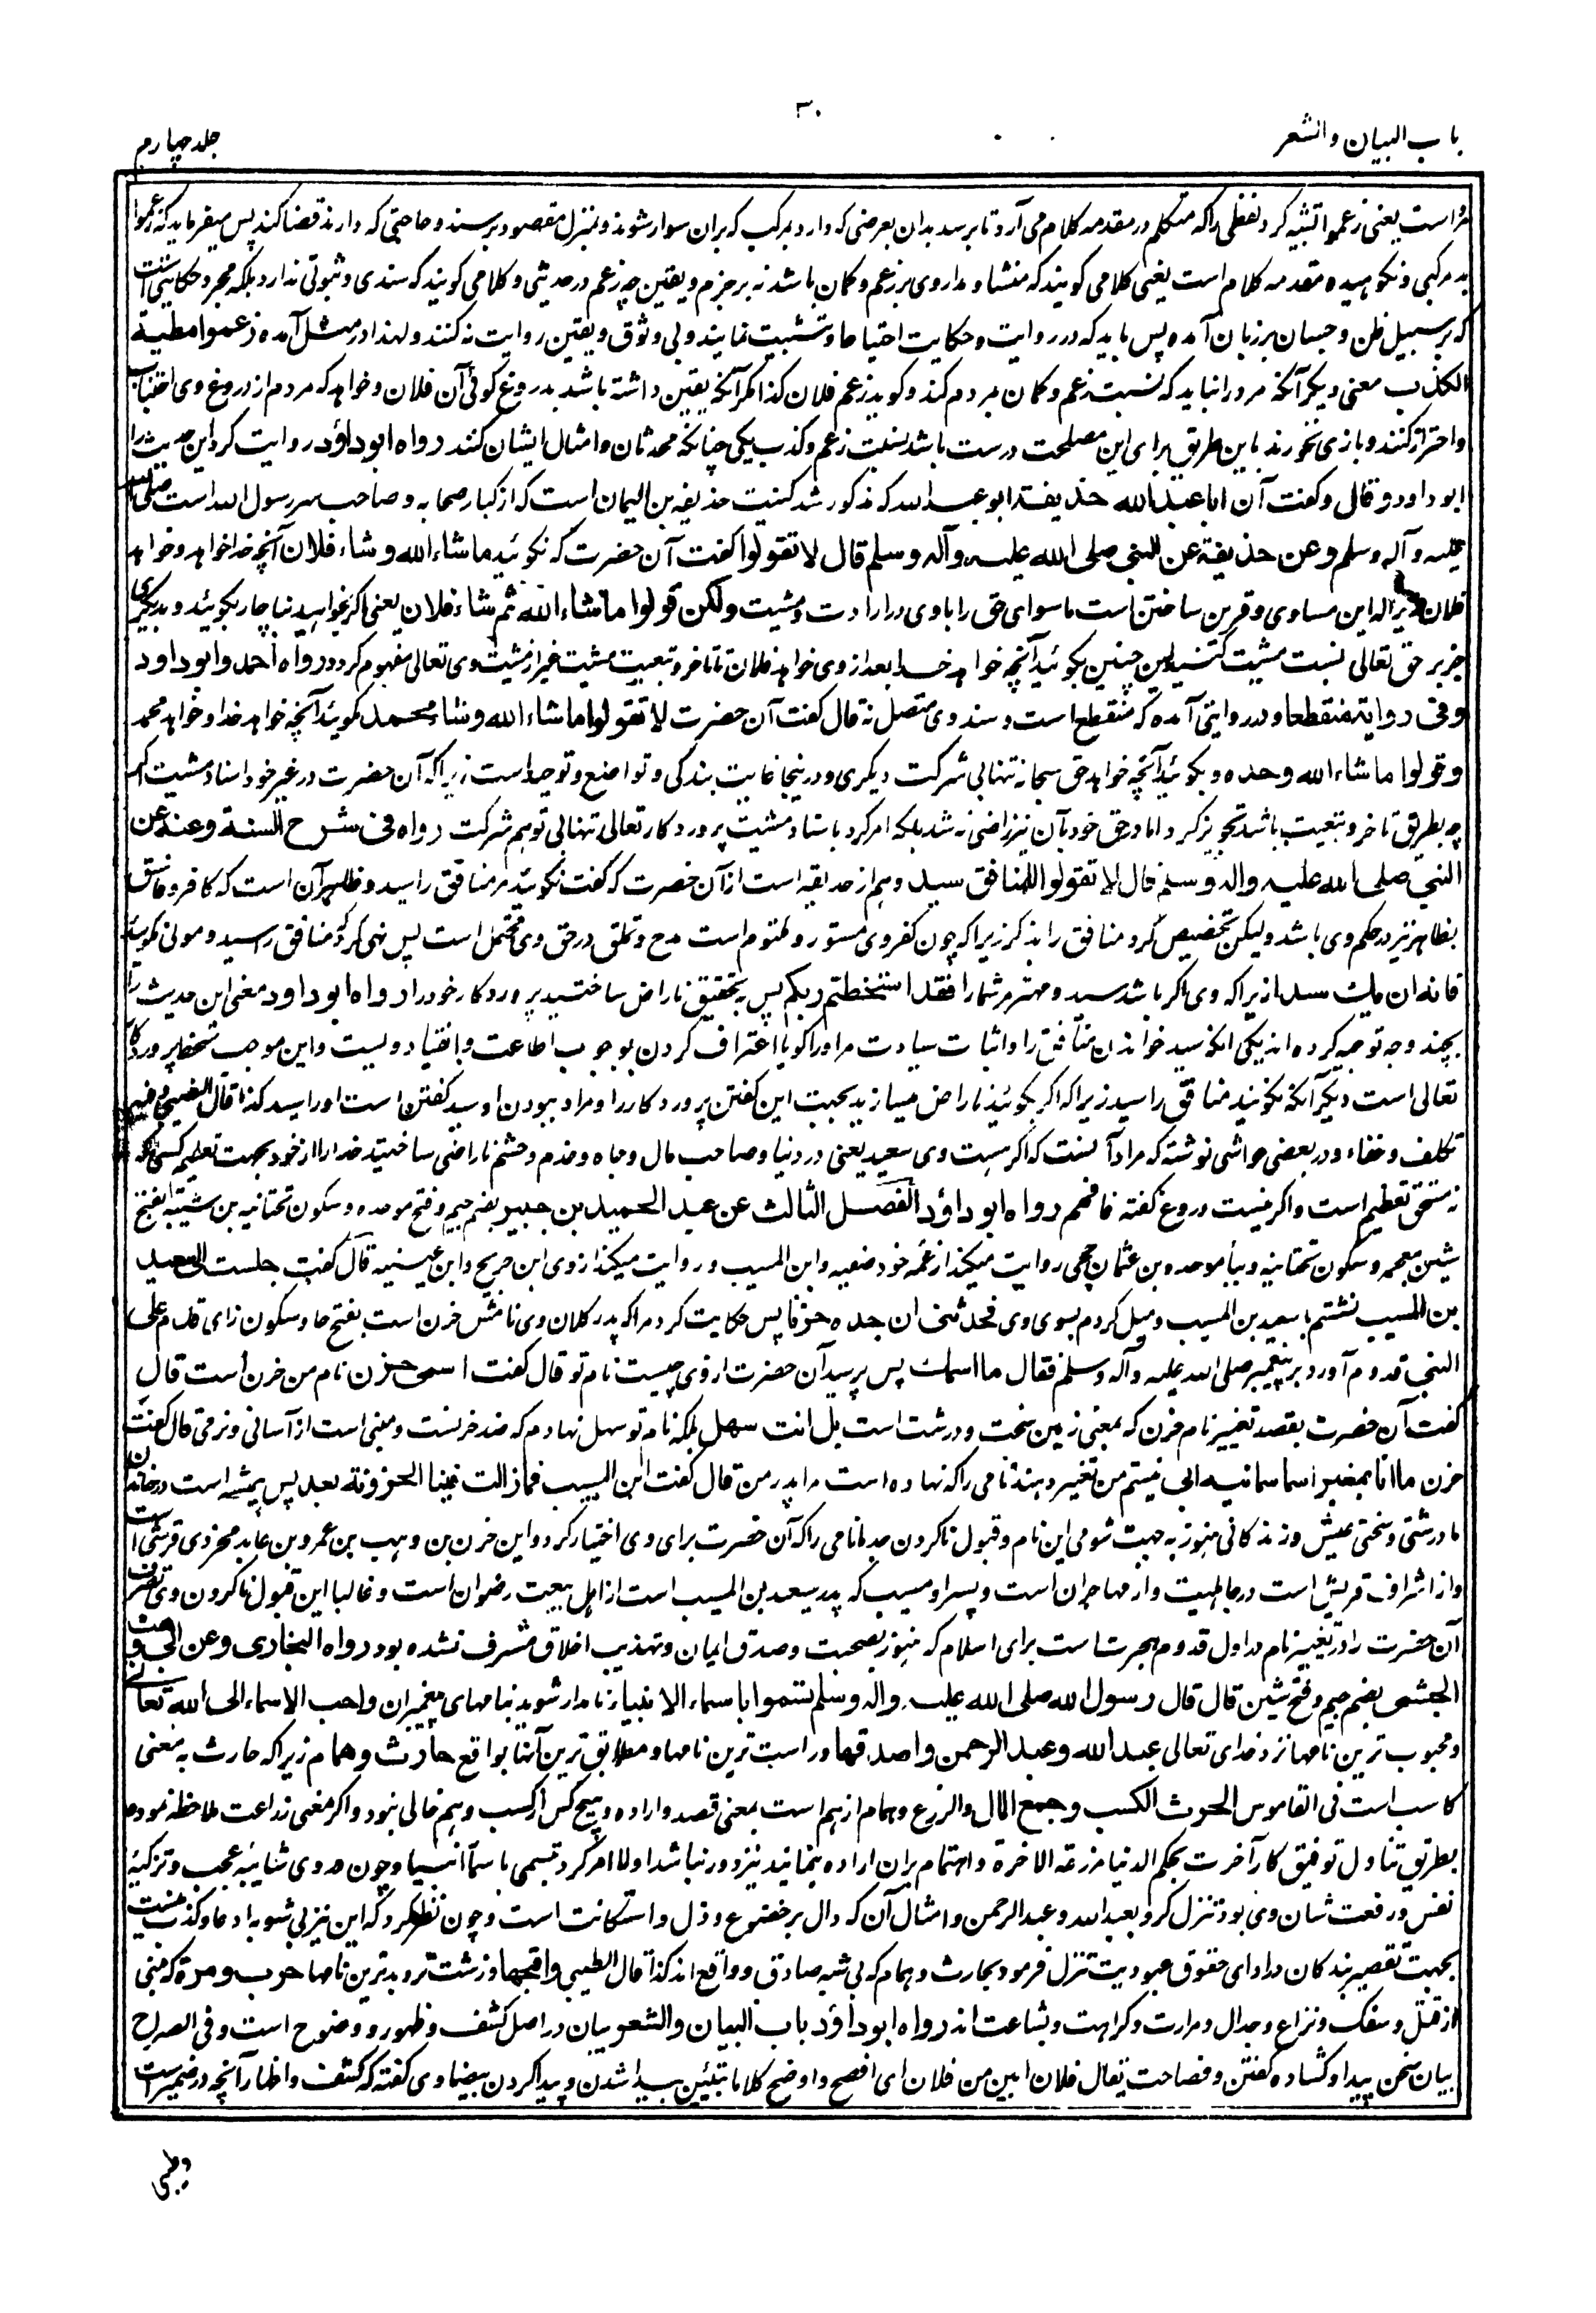 ۳۰
باب البیان والشعر
جلد چهارم
مر است یعنی زعموا تشبیه کرد لفظی را که متکلم در مقدمه کلام می آرد تا برسد بدان بعرضی که دارد بمرکب که بران سوار شوند و بمنزل مقصود برسند و حاجتی که دارند قضا کنند پس میفرماید که زعموا
بد مرکبی و نکوهیده مقدمه کلام است یعنی کلامی که گویند که منشا و مدار وی بر زعم و گمان باشد نه بر جزم و یقین چه زعم در حدیثی و کلامی گویند که سندی و ثبوتی ندارد بلکه مجرد حکایتی است
که بر سبیل ظن و حسبان بر زبان آمده پس باید که در روایت و حکایت احتیاط و تثبیت نمایند و بی وثوق و یقین روایت نه کنند و لهذا در مثل آمده زعموا مطیة
الکذب معنی دیگر آنکه مرد را نباید که نسبت زعم و گمان بمردم کند و گوید زعم فلان کذا مگر آنکه یقین داشته باشد بدروغ گوئی آن فلان و خواهد که مردم از دروغ وی اجتناب
و احتراز کنند و بازی نخورند باین طریق برای این مصلحت درست باشد نسبت زعم و کذب بیکی چنانکه محدثان و امثال ایشان کنند رواه ابوداؤد روایت کرد این حدیث را
ابو داود و قال و گفت آن اباعبدالله حذیفة ابوعبدالله که مذکور شد کنیت حذیفه بن الیمان است که از کبار صحابه و صاحب سر رسول الله است صلی الله
علیه و آله وسلم وعن حذیفة عن النبی صلی الله علیه وآله وسلم قال لا تقولوا گفت آن حضرت که نگوئید ماشاء الله وشاء فلان آنچه خدا خواهد و خواهد
فلان زیرا که این مساوی و قرین ساختن است ماسوای حق را باوی در ارادت و مشیت ولکن قولوا ماشاء الله ثم شاء فلان یعنی اگر بخواهید ناچار بگوئید و بدیگری
جز بر حق تعالی نسبت مشیت کنید پس چنین بگوئید آنچه خواهد خدا بعد از وی خواهد فلان تا تاخر و تبعیت مشیت غیر از مشیت وی تعالی مفهوم گردد رواه احمد وابوداود
وفی روایة منقطعا و در روایتی آمده که منقطع است و سند وی متصل نه قال گفت آن حضرت لا تقولوا ماشاء الله وشاء محمد نگوئید آنچه خواهد خدا و خواهد محمد
وقولوا ماشاء الله وحده و بگوئید آنچه خواهد حق سبحانه تنها بی شرکت دیگری و درینجا غایت بندگی و تواضع و توحید است زیرا که آن حضرت در غیر خود اسناد مشیت اگر
چه بطریق تاخر و تبعیت باشد تجویز کرد اما در حق خود بآن نیز راضی نه شد بلکه امر کرد باسناد مشیت پروردگار تعالی تنها بی توهم شرکت رواه فی شرح السنة وعنه عن
النبی صلی الله علیه واله وسلم قال لا تقولوا للمنافق سید وهم از حذیفه است از آن حضرت که گفت نگوئید مر منافق را سید و ظاهر آن است که کافر و فاسق
بظاهر نیز در حکم وی باشد ولیکن تخصیص کرد منافق را بذکر زیرا که چون کفر وی مستور و مکتوم است مدح و تملق در حق وی محتمل است پس نهی کرد که منافق را سید و مولی گویند
فانه ان یك سیدا زیرا که وی اگر باشد سید و مهتر مر شما را فقد اسخطتم ربکم پس بتحقیق ناراض ساختید پروردگار خود را رواه ابوداود معنی این حدیث را
بچند وجه توجیه کرده اند یکی آنکه سید خواندن منافق را و اثبات سیادت مر او را گویا اعتراف کردن بوجوب اطاعت و انقیاد ویست و این موجب سخط پروردگار
تعالی است دیگر آنکه نگوئید منافق را سید زیرا که اگر بگوئید ناراض میسازید بجهت این گفتن پروردگار را و مراد ببودن او سید گفتن است او را سید کذا قال الطیبی و فیه
تکلف و خفاء و در بعضی حواشی نوشته که مراد آنست که اگر هست وی سید یعنی در دنیا و صاحب مال و جاه و خدم و حشم ناراضی ساختید خدا را از خود بجهت تعظیم کسی که
نه مستحق تعظیم است و اگر نیست دروغ گفته فافهم رواه ابوداؤد الفصل الثالث عن عبد الحمید بن جبیر بضم جیم و فتح موحده و سکون تحتانیه بن شیبة بفتح
شین معجمه و سکون تحتانیه و بباء موحده بن عثمان حجبی روایت میکند از عمه خود صفیه و ابن المسیب و روایت میکند از وی ابن جریج و ابن عیینه قال گفت جلست الی سعید
بن المسیب نشستم با سعید بن المسیب و میل کردم بسوی وی فحدثنی ان جده حزنا پس حکایت کرد مرا که پدر کلان وی نامش حزن است بفتح حا و سکون زای قدم علی
النبی قدوم آورد بر پیغمبر صلی الله علیه وآله وسلم فقال ما اسمك پس پرسید آن حضرت از وی چیست نام تو قال گفت اسمی حزن نام من حزن است قال
گفت آن حضرت بقصد تغییر نام حزن که بمعنی زمین سخت و درشت است بل انت سهل بلکه نام تو سهل نهادم که ضد حزنست و مبنی است از آسانی و نرمی قال گفت
حزن ما انا بمغیر اسما سمانیه ابی نیستم من تغییر دهنده نامی را که نهاده است مرا پدر من قال گفت ابن المسیب فمازالت فینا الحزونة بعد پس همیشه است در خاندان
ما درشتی و سختی عیش و زندگانی هنوز به جهت شومی این نام و قبول ناکردن جد ما نامی را که آن حضرت برای وی اختیار کرد و این حزن بن وهب بن عمرو بن عابد مخزومی قرشی است
و از اشراف قریش است در جاهلیت و از مهاجران است و پسر او مسیب که پدر سعید بن المسیب است از اهل بیعت رضوان است و غالبا این قبول ناکردن وی تصرف
آن حضرت را در تغییر نام در اول قدوم هجرت است برای اسلام که هنوز بصحبت و صدق ایمان و تهذیب اخلاق مشرف نشده بود رواه البخاری وعن ابی وهب
الجشمی بضم جیم و فتح شین قال قال رسول الله صلی الله علیه واله وسلم تسموا باسماء الانبیاء نامدار شوید بنامهای پیغمبران واحب الاسماء الی الله تعالی
و محبوب ترین نامها نزد خدای تعالی عبدالله وعبدالرحمن واصدقها و راست ترین نامها و مطابق ترین آنها بواقع حارث وهمام زیرا که حارث به معنی
کاسب است فی القاموس الحرث الکسب وجمع المال والزرع و همام از هم است بمعنی قصد و اراده و هیچ کس از کسب و هم خالی نبود و اگر معنی زراعت ملاحظه نموده
بطریق تناول توفیق کار آخرت بحکم الدنیا مزرعة الاخرة و اهتمام بران اراده نمایند نیز دور نباشد اولا امر کرد بتسمی باسماء انبیا و چون در وی شائبه عجب و تزکیه
نفس و رفعت شان وی بود تنزل کرد بعبدالله وعبدالرحمن و امثال آن که دال بر خضوع و ذل و استکانت است و چون نظر کرد که این نیز بی شوب ادعا و کذب نیست
بجهت تقصیر بندگان در ادای حقوق عبودیت تنزل فرمود بحارث و همام که بی شبه صادق و واقع اند کذا قال الطیبی واقبحها و زشت تر و بدترین نامها حرب ومرة که مبنی
از قتل و سفک و نزاع و جدال و مرارت و کراهت و بشاعت اند رواه ابوداؤد باب البیان والشعر بیان در اصل کشف و ظهور و وضوح است و فی الصراح
بیان سخن پیدا و کشاده گفتن و فصاحت یقال فلان ابین من فلان ای افصح واوضح کلاما تبیین پیدا شدن و پیدا کردن بیضاوی گفته که کشف و اظهار آنچه در ضمیر است